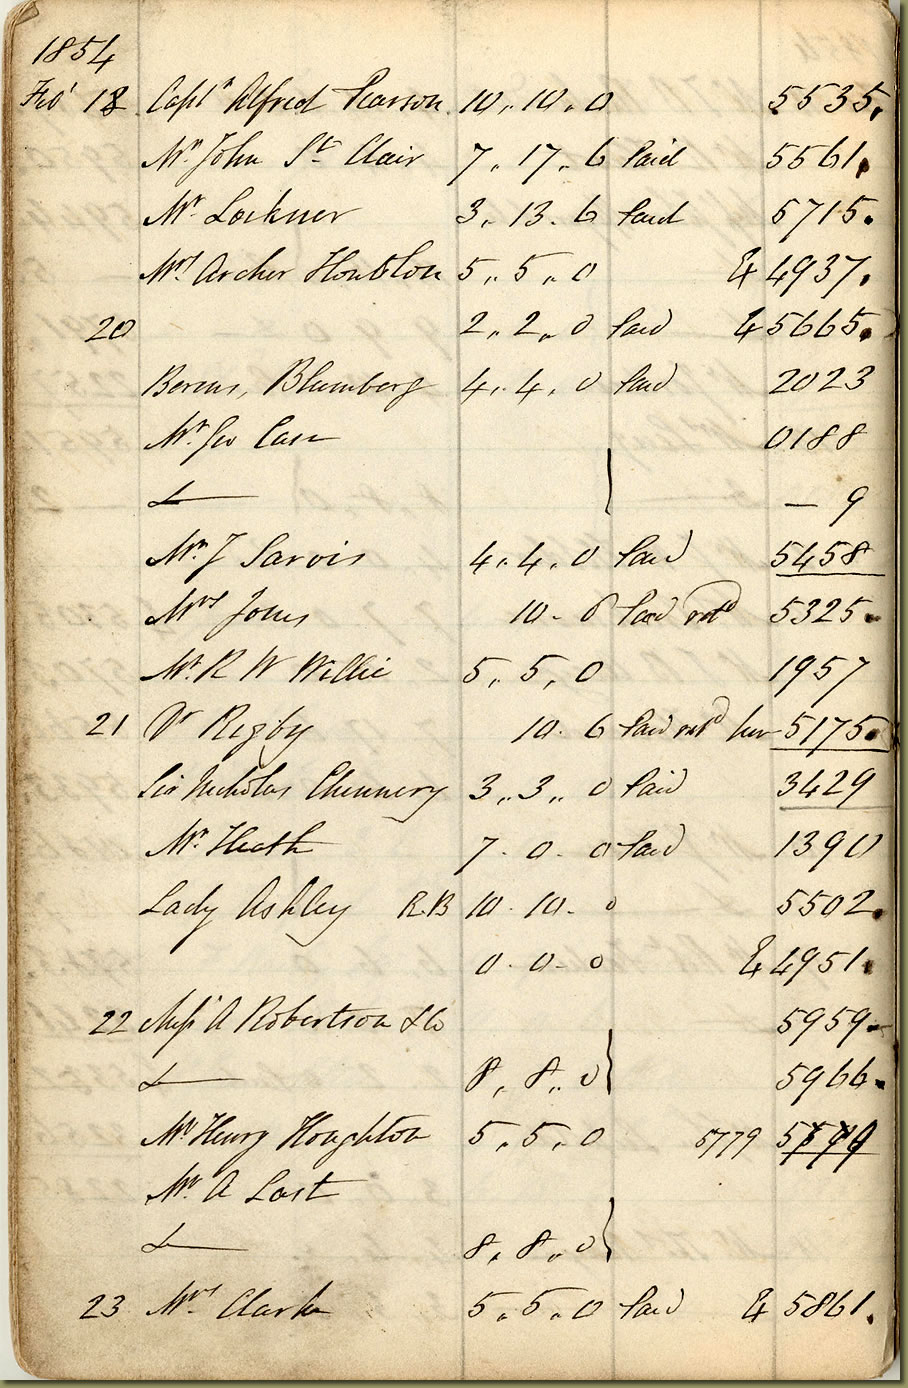 1854
Feb' 18 Captn Alfred Pearson 10,, 10,, 0 5535.
Mr John St Clair 7,, 17,, 6 Paid 5561.
Mr Lockner 3,, 13. 6 Paid 5715.
Mrs Archer Houblon 5,, 5,, 0 & 4937.
20 2,, 2,, 0 Paid & 5665.
Berens, Blumberg 4,, 4,, 0 Paid 2023
Mr Geo 0188
— 9
Mr J Jarvis 4,, 4,, 0 Paid 5458
Mrs Jones 10 - 6 Paid retd 5325.
Mr R W Willie 5,, 5,, 0 1957
21 Dr Rigby 10. 6 Paid retd 5175.
Sir Nicholas Chinnery 3,, 3,, 0 Paid 3429
Mr Heath 7. 0. 0 Paid 1390
Lady Ashley R.B 10. 10. 0 5502.
0. 0. 0 & 4951.
22 Messrs A Robertson & Co 5959.
8,, 8,, 0 5966.
Mr Henry Houghton 5,, 5,, 0 5779
Mr A Last
8,, 8,, 0
23 Mrs Clark 5,, 5,, 0 Paid & 5861.